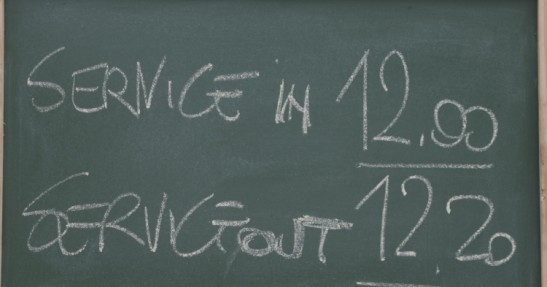 SERVICE in 12.00
SERVICE OUT 12.20